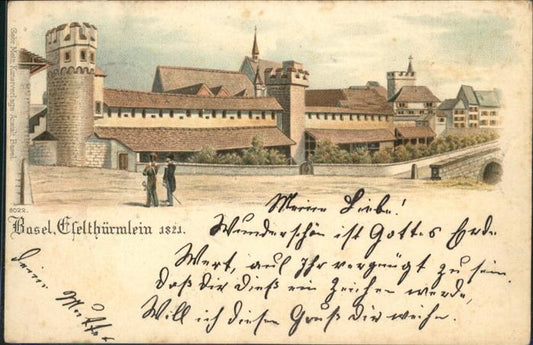 8022.
Basel, Eselthürmlein 1821.
Meine Liebe!
Wunderschön ist Gottes Erde
Wert, auf Ihr vergnügt zu sein.
Daß Dir dieß ein Zeichen werde,
Will ich diesen Gruß Dir weihn.
Deine